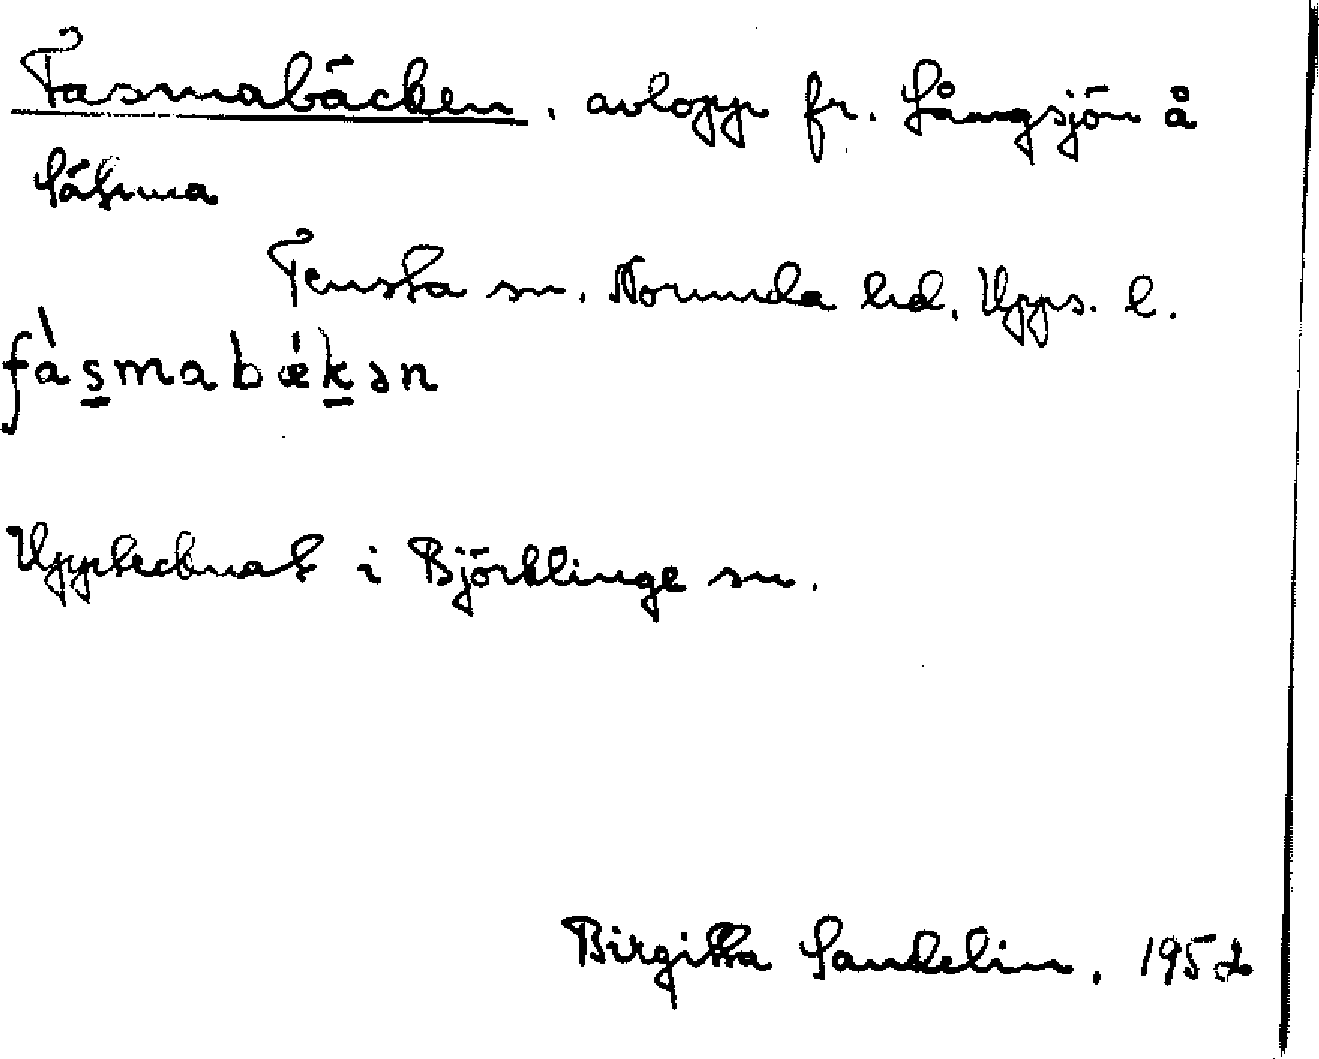 Fasmabäcken, avlopp fr. Långsjön å
Sätuna
Tensta sn. Norunda hd. Upps. l.
fàs̲mabǽk̲ən
Upptecknat i Björklinge sn.
Birgitta Sandelin, 1952